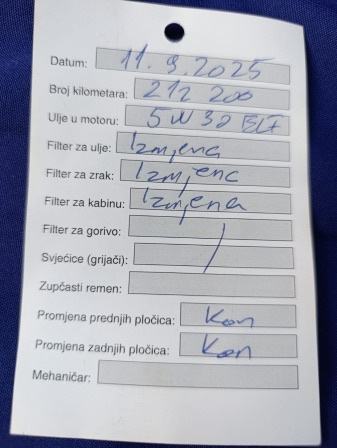 Datum: 11.9.2025
Broj kilometara: 212 200
Ulje u motoru: 5W30
Filter za ulje: Izmjena
Filter za zrak: Izmjena
Filter za kabinu: Izmjena
Filter za gorivo: /
Svjećice (grijači):
Zupčasti remen:
Promjena prednjih pločica: Kon
Promjena zadnjih pločica: Kon
Mehaničar: